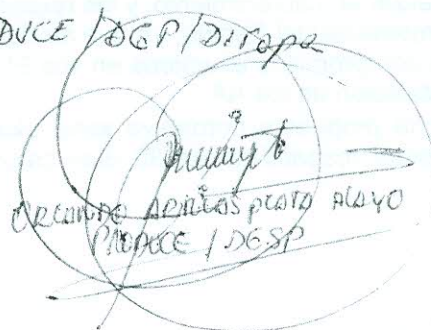 DUCE/DGP/Diropa
ORLANDO ARMLAS PLATA ALAYO
PRODUCE / DGSP